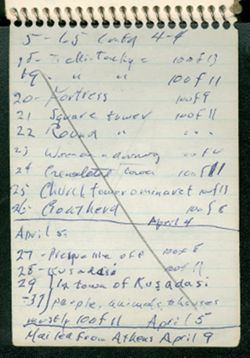 5-65 Cont'd 4-4
18- 100 of 13
19 " " 100 of 11
20- Fortress 100 of 9
21 Square tower 100 of 11
22 Round " " "
23 Woman
24 Crenelated tower 100 of 11
25 Church tower or minaret 100 of 13
26- Goatherd 100 of 8
April 4
April 5.
27- 100 of 8
28- Kusadasi 100 of 11
29 } In town of Kusadasi
-37 } people, animals, houses
mostly 100 of 11 April 5
Mailed from Athens April 9